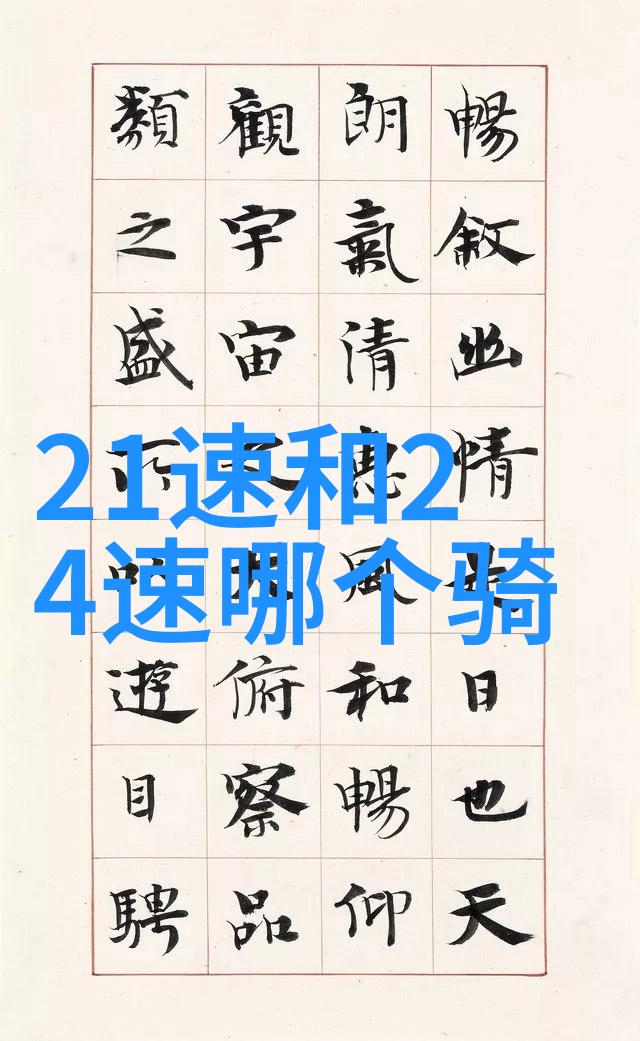 21速和2
4速哪个骑
暢敘幽情是日也天
朗氣清惠風和暢仰
觀宇宙之大俯察品
類之盛所以遊目騁